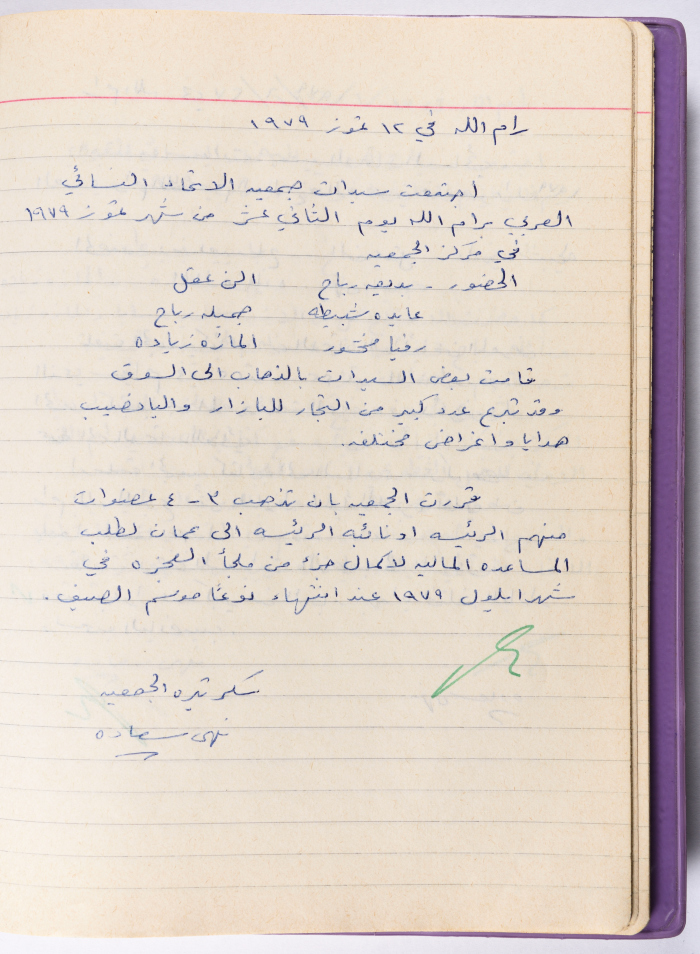 رام الله في ١٢ تموز ١٩٧٩
اجتمعت سيدات جمعيه الاتحاد النسائي
العربي برام الله يوم الثاني عشر من شهر تموز ١٩٧٩
في مركز الجمعيه
الحضور - بديعه رباح الن عقل
عايده شبيطه جميله رباح
رفيا الماظه زياده
قامت بعض السيدات بالذهاب الى السوق
وقد تبرع عدد كبير من التجار للبازار واليانصيب
هدايا واغراض مختلفه.
قررت الجمعيه بان تذهب ٣ - ٤ عضوات
منهم الرئيسه او نائبه الرئيسه الى عمان لطلب
المساعده الماليه لاكمال جزء من ملجأ العجزه في
شهر ايلول ١٩٧٩ عند انتهاء نوعًا موسم الصيف.
سكرتيره الجمعيه
نهى سعاده